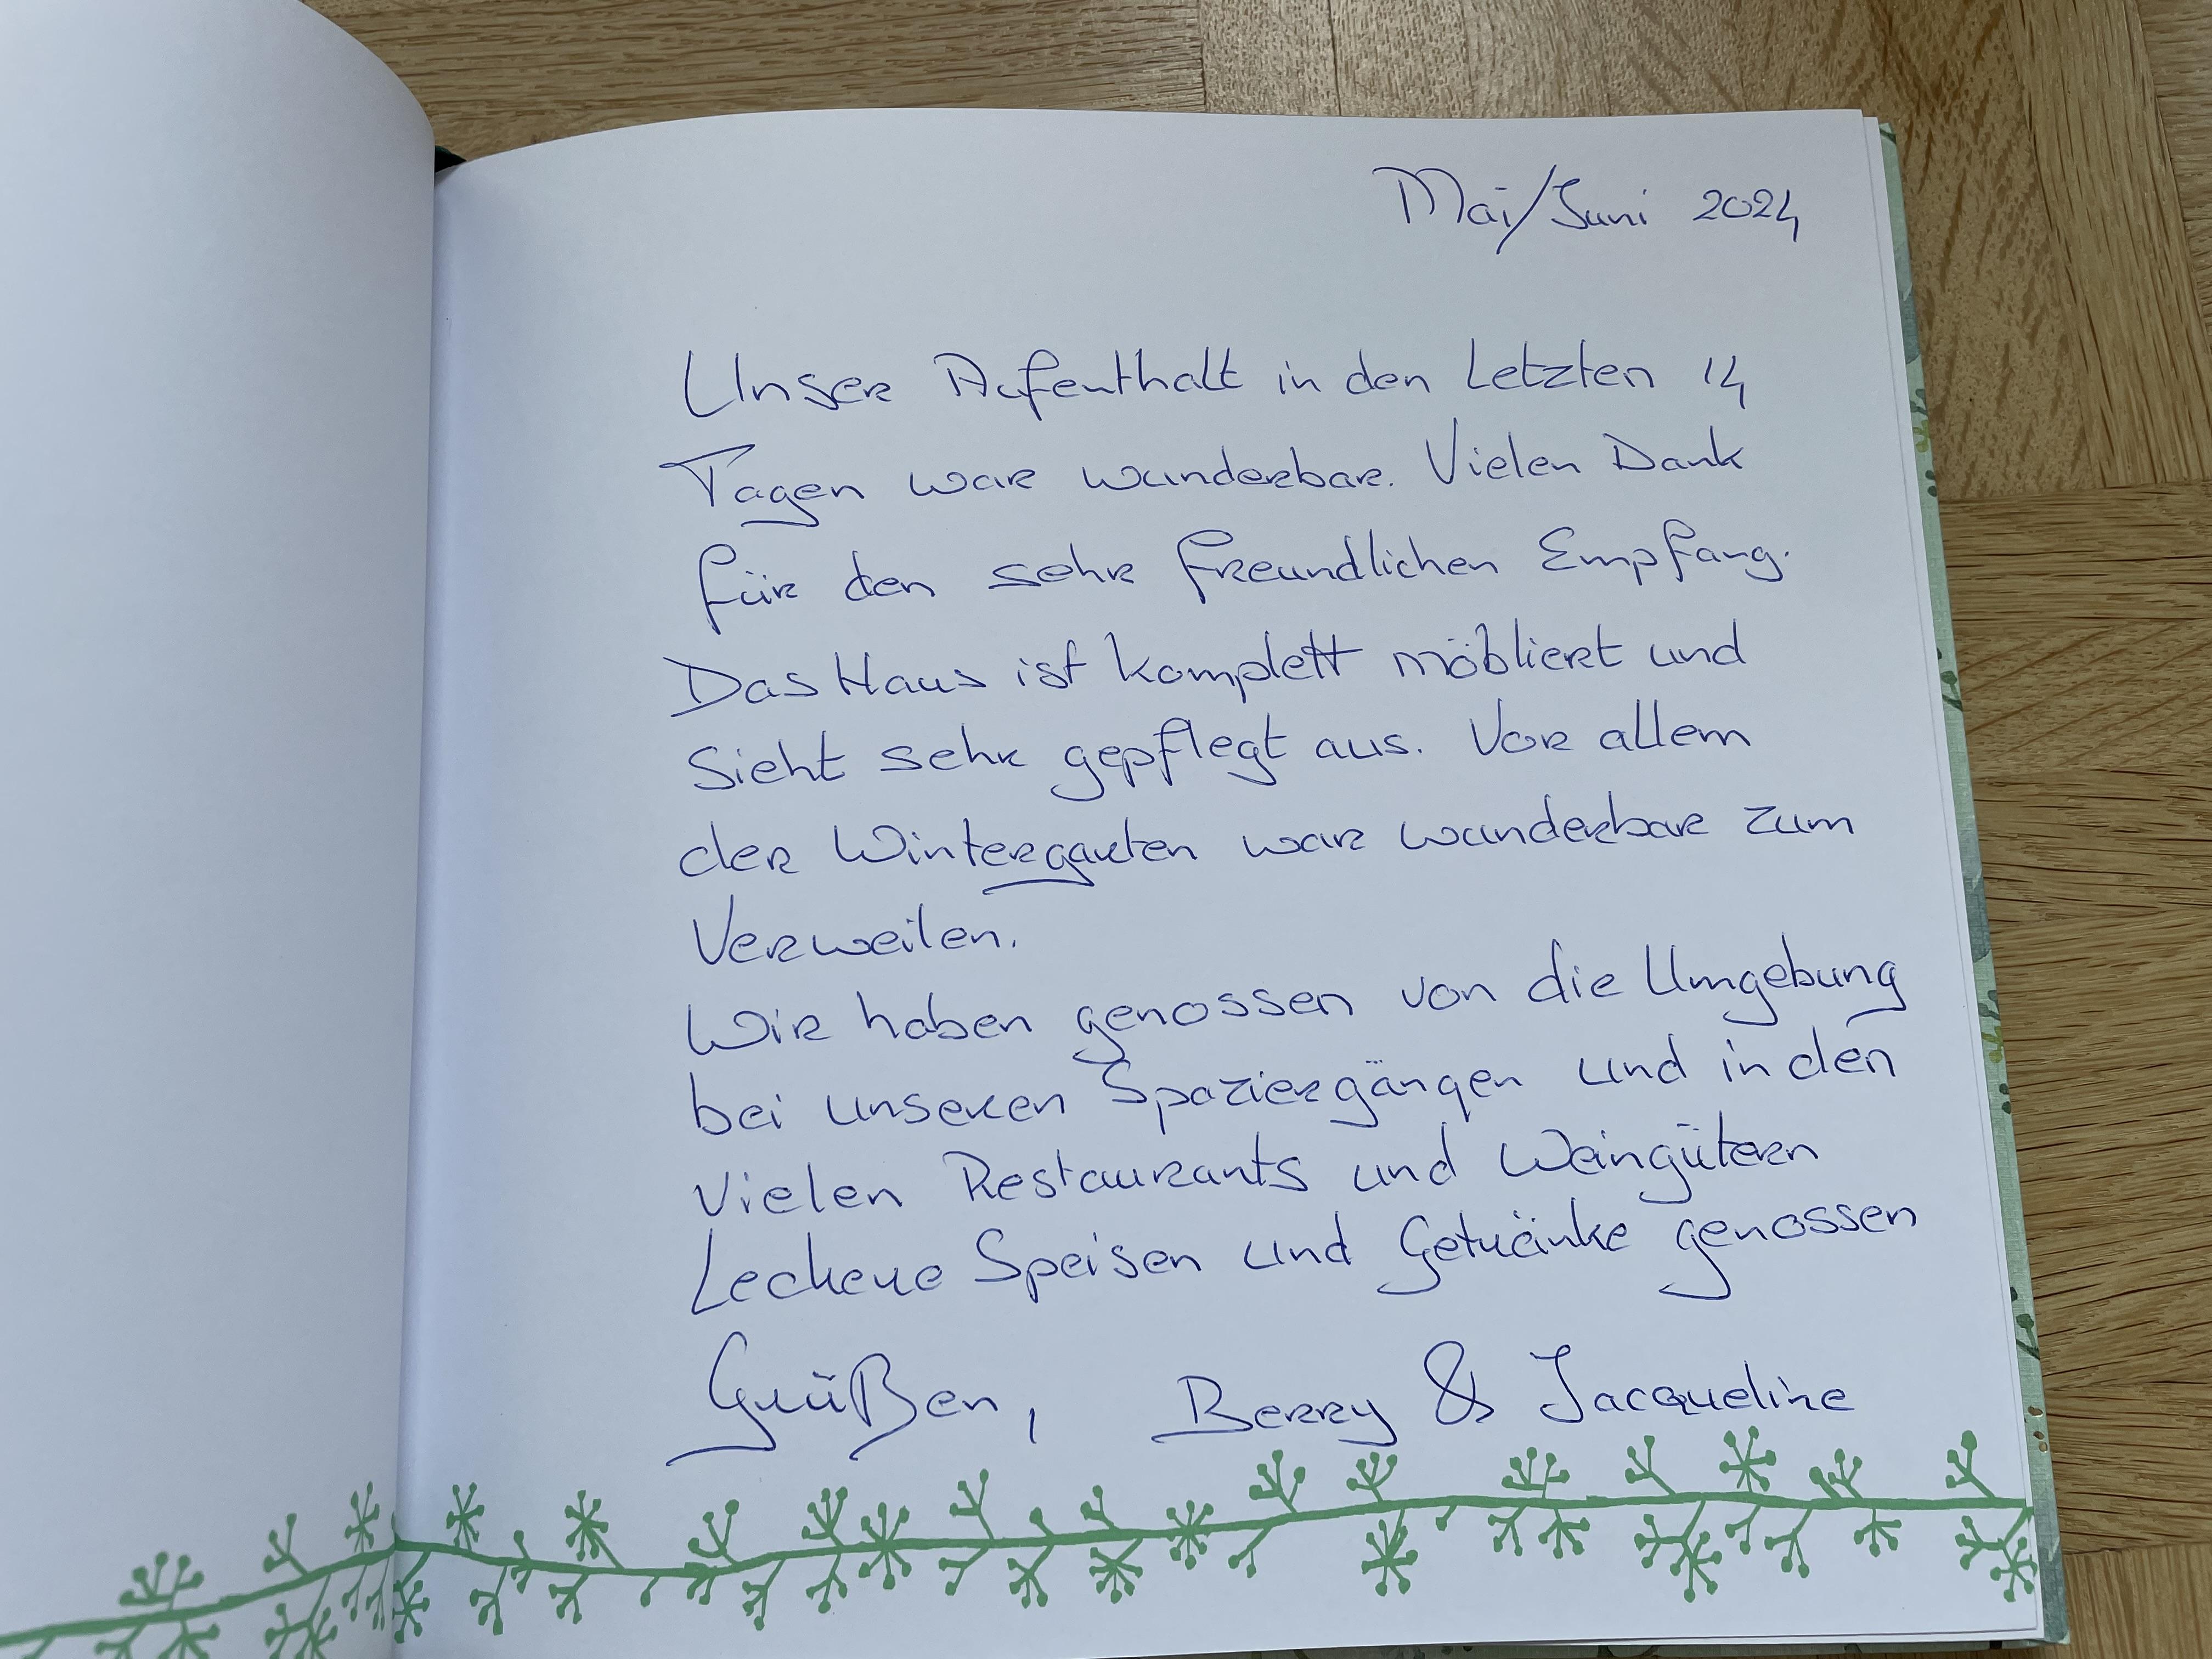 Mai/Juni 2024
Unser Aufenthalt in den Letzten 14
Tagen war wunderbar. Vielen Dank
für den sehr freundlichen Empfang.
Das Haus ist komplett möbliert und
Sieht sehr gepflegt aus. Vor allem
der Wintergarten war wunderbar zum
Verweilen.
Wir haben genossen von die Umgebung
bei unseren Spaziergängen und in den
vielen Restaurants und Weingütern
Leckere Speisen und Getränke genossen
Grüßen, Berry & Jacqueline